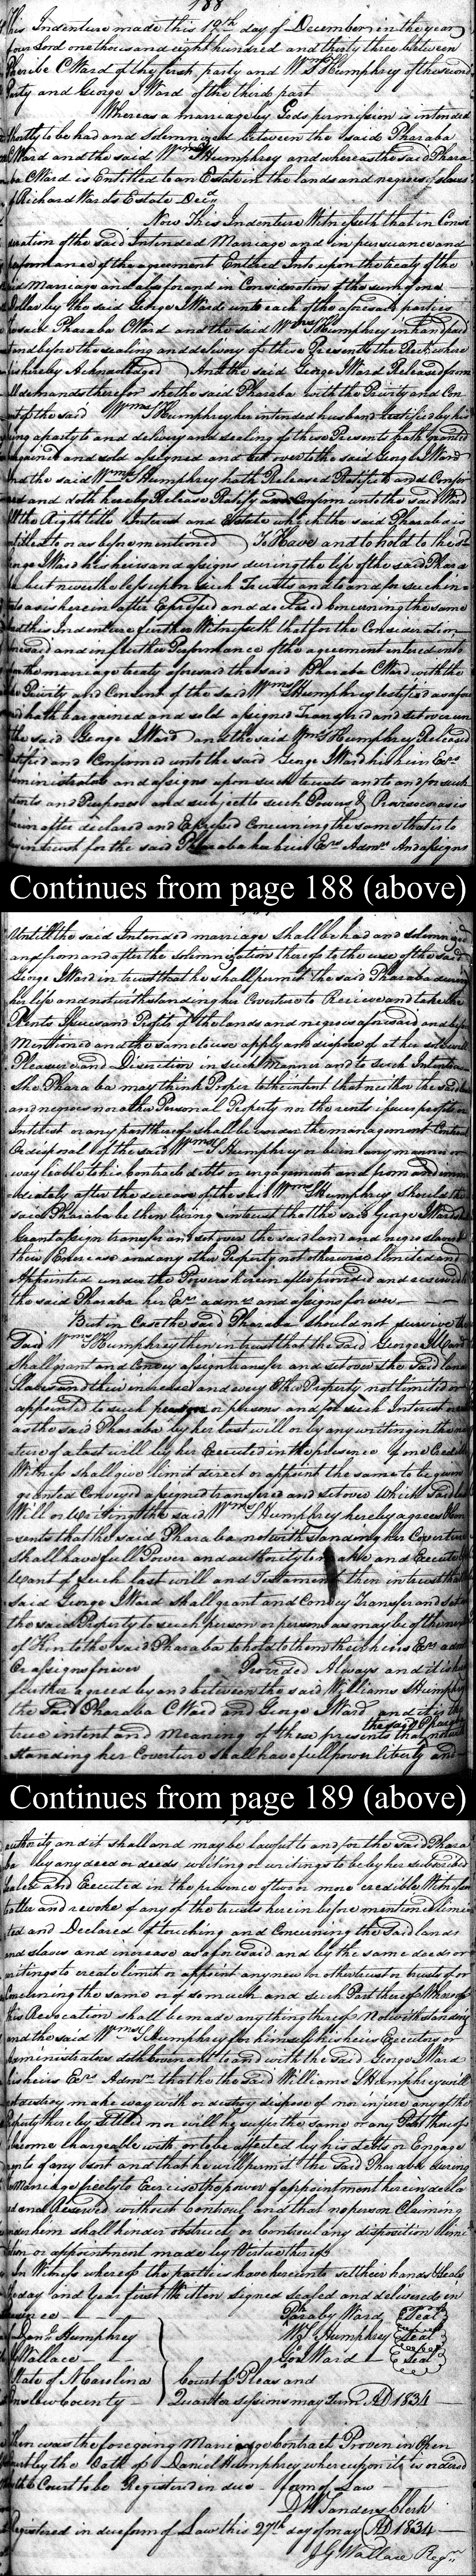 188
This Indenture made this 19th day of December in the year
four Lord one thous and eight hundred and thirty three between
Pheribe C Ward of the first party and Wms S Humphrey of the second
Party and George J Ward of the third part
Whereas a marriage by Gods permission is intended
Shortly to be had and Solemnized between the said Pharaba
C Ward and the said Wms S Humphrey and whereas the said Phara
ba C Ward is Entitled to an Estate in the lands and negroes slaves
of Richard Wards Estate Decd
Now This Indenture Witnesseth that in Consi
deration of the said Intended Marriage and in pursuance and
performance of the agreement Entered Into upon the treaty of the
said Marriage and also for and in Consideration of the sum of one
Dollar by the said George J Ward unto each of the aforesaid parties
the said Pharaba C Ward and the said Wms S Humphrey in hand paid
and before the sealing and delivery of these Presents the Rect where
is hereby Acknowledged And the said George J Ward Released from
all demands therefor she the said Pharaba with the Privity and Con
sent of the said Wms S Humphrey her intended husband testified by his
being a party to and delivery and sealing of these Presents hath granted
bargained and sold assigned and set over to the said George J Ward
And the said Wms S Humphrey hath Released Ratified and Confir
med and doth hereby Release Ratify and Confirm unto the said Ward
All the Right title Interest and Estate which the said Pharaba is
entitled to or as before mentioned To Have and to hold to the sd
George J Ward his heirs and assigns during the life of the said Phara
ba but nevertheless upon such Trusts and to and for such in
tents as is herein after Expressed and declared Concerning the same
and this Indenture further Witnesseth that for the Consideration
aforesaid and in further Performance of the agreement entered into
upon the marriage treaty aforesaid the said Pharaba C Ward with the
the Privity and Consent of the said Wms S Humphrey testified as afore
said hath bargained and sold assigned Transfered and set over un
to the said George J Ward and the said Wms S Humphrey Released
Ratified and Confirmed unto the said George J Ward his heirs Exrs
administrators and assigns upon such trusts and to and for such
intents and Purposes and subject to such Powers & Provisoes as is
herein after declared and Expressed Concerning the same that is to
say in trust for the said Pharaba her heirs Exrs Admrs And assigns
Continues from page 188 (above)
Untill the said Intended marriage shall be had and solemnized
and from and after the solemnization thereof to the use of the said
George J Ward in trust that he shall permit the said Pharaba during
her life and notwithstanding her Coverture to Receive and take the
Rents Issues and Profits of the lands and negroes aforesaid and before
Mentioned and the same to use apply and dispose of at her sole will
Pleasure and Discretion in such Manner and to such Intents as
She Pharaba may think Proper to the intent that neither the said lands
and negroes nor other Personal Property nor the rents issues profits or
Interest or any part thereof shall be under the management Control
Or disposal of the said Wms S Humphrey or be in any manner or
way liable to his contracts debts or engagements and from and imm
ediately after the decease of the said Wms S Humphrey should the
said Pharaba be then living in trust that the said George J Ward shall
Grant assign transfer and set over the said land and negro slaves
their Increase and any other Property not otherwise limited and
Appointed under the Powers herein after provided and reserved
the said Pharaba her Exrs admrs and assigns forever
But in Case the said Pharaba should not survive the
Said Wms S Humphrey then in trust that the said George J Ward
shall grant and Convey assign transfer and set over the said land
Slaves and their increase and every Other Property not limited or
appointed to such person or persons and for such Interest
as the said Pharaba by her last will or by any writing in the na
ture of a last will by her Executed in the presence of one Credible
Witness shall give limit direct or appoint the same to be given
granted Conveyed assigned transfered and set over Which Said last
Will or Writing the said Wms S Humphrey hereby agrees & con
sents that the said Pharaba notwithstanding her Coverture
shall have full Power and authority to make and Execute
Want of such last will and Testament then in trust that
said George J Ward shall grant and Convey Transfer and set over
the said Property to such person or persons as may be of the next
of Kin to the said Pharaba to hold to them their heirs Exrs admrs
Or assigns forever Provided Always and it is hereby
further agreed by and between the said Williams S Humphrey
the Said Pharaba C Ward and George J Ward and it is the
true intent and Meaning of these presents that the said Pharaba notwith
standing her Coverture shall have full power liberty and
Continues from page 189 (above)
authority and it shall and may be lawful to and for the said Phara
ba by any deed or deeds writing or writings to be by her subscribed
sealed and Executed in the presence of two or more credible Witnesses
to alter and revoke of any of the trusts herein before mentioned limi
ted and Declared of touching and Concerning the Said lands
and slaves and increase as aforesaid and by the same deeds or
writings to create limit or appoint any new or other trust or trusts of or
Concerning the same or of so much and such Part thereof Whereof
this Revocation shall be made any thing thereof Notwithstanding
and the said Wms S Humphrey for himself his heirs Executors or
administrators doth Covenant to and with the said George J Ward
his heirs Exrs Admrs that he the said Williams S Humphrey will
not destroy make way with or destroy dispose of nor injure any of the
Property hereby settled nor will he suffer the same or any Part thereof
become chargeable with or to be affected by his debts or Engage
ments of any sort and that he will permit the Said Pharaba during
Marriage freely to Exercise the power of appointment herein decla
red and Reserved without Controul and that no person Claiming
under him shall hinder obstruct or Controul any disposition limi
tation or appointment made by Virtue thereof
In Witness whereof the parties have hereunto set their hands & Seals
the day and Year first Written signed sealed and delivered in
presence
Danl Humphrey
J Wallace
Pharaby Ward Seal
Wms S Humphrey Seal
Geo Ward Seal
State of N Carolina
Onslow County
Court of Pleas and
Quarter sessions may Term AD 1834
Then was the foregoing Marriage Contract Proven in Open
Court by the Oath of Daniel Humphrey whereupon it is ordered
by the Court to be Registered in due form of Law
D W Sanders Clerk
Registered in due form of Law this 27th day of may AD 1834
J G Wallace Regr